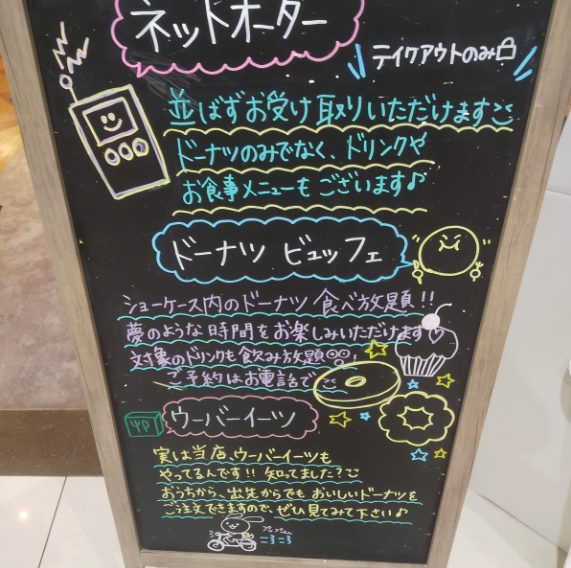 ネットオーダー
テイクアウトのみ
並ばずお受け取りいただけます
ドーナツのみでなく、ドリンクや
お食事メニューもございます♪
ドーナツ ビュッフェ
ショーケース内のドーナツ 食べ放題!!
夢のような時間をお楽しみいただけます♡
対象のドリンクも飲み放題
ご予約はお電話で
ウーバーイーツ
実は当店、ウーバーイーツも
やってるんです!! 知ってました?
おうちから、出先からでも おいしいドーナツを
ご注文できますので、ぜひ見てみて下さい♪